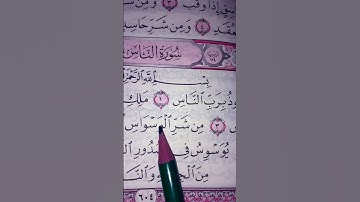 ـق إذا وقب ٣ ومن شر
عقد ٤ ومن شر حاسد
سُورَةُ النَّاسِ
بِسْمِ ٱللَّهِ ٱلرَّحْمَٰنِ
ـوذُ بِرَبِّ ٱلنَّاسِ ١ مَلِكِ
٣ مِن شَرِّ ٱلْوَسْوَاسِ
يُوَسْوِسُ فِي صُدُورِ
مِنَ ٱلْجِنَّةِ وَٱلنَّا
٦٠٤